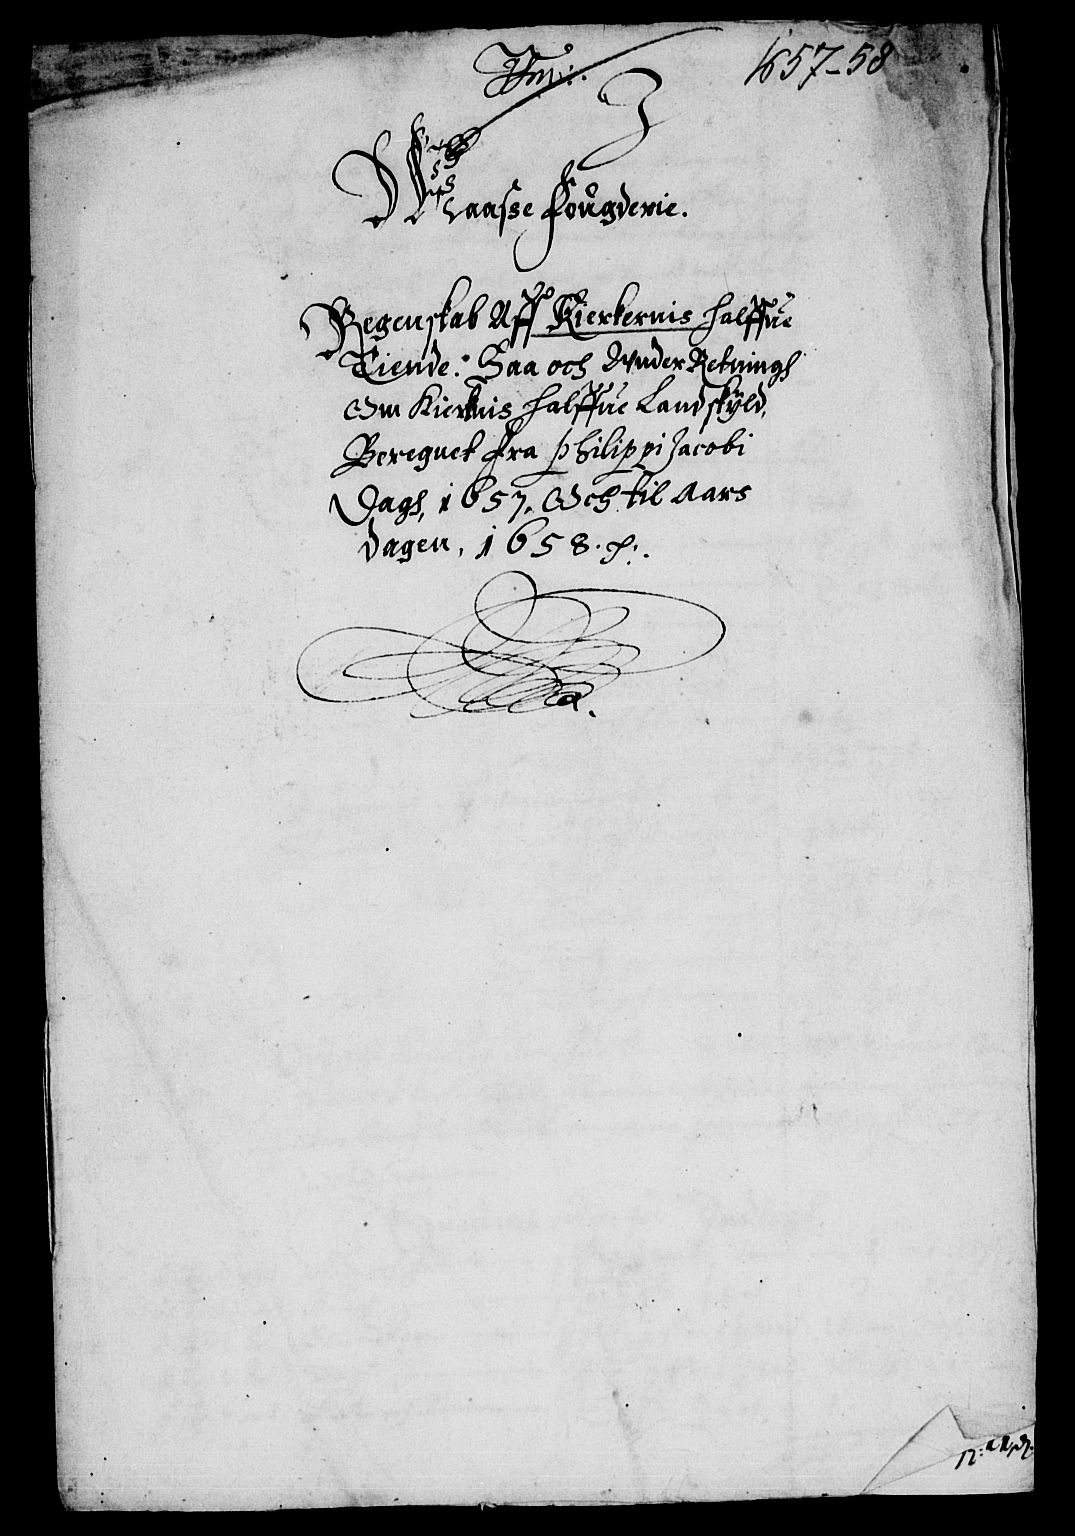 1657-58
Raasse Fougderie.
Regenskab Aff Kierkernis halffue
Tiende. Saa och Vnder Retningh
Om Kierknis halffue Landskyld,
Beregnet fra Philippi Jacobi
Dagh, 1657. Och til Aars
dagen, 1658.